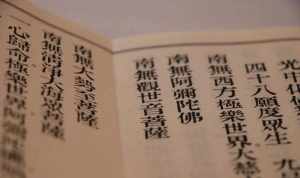 光中化佛
四十八願度眾生 九
南無西方極樂世界大慈
南無阿彌陀佛
南無觀世音菩薩
南無大勢至菩薩
南無清淨大海眾菩薩
心歸命極樂世界阿彌